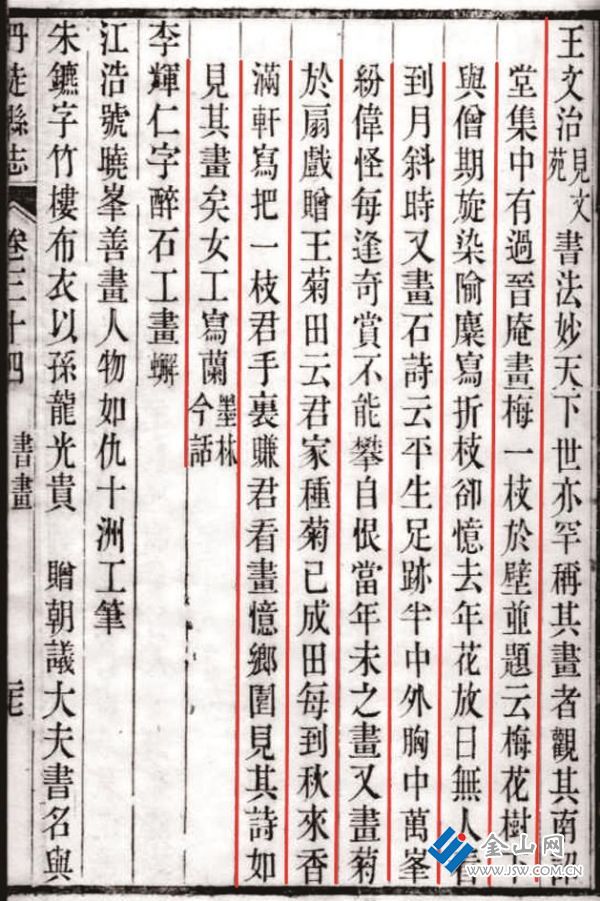 王文治見文苑書法妙天下世亦罕稱其畫者觀其南詔
堂集中有過晉庵畫梅一枝於壁並題云梅花樹下
與僧期旋染隃麋寫折枝卻憶去年花放日無人看
到月斜時又畫石詩云平生足跡半中外胸中萬峯
紛偉怪每逢奇賞不能攀自恨當年未之畫又畫菊
於扇戲贈王菊田云君家種菊已成田每到秋來香
滿軒寫把一枝君手裏賺君看畫憶鄉園見其詩如
見其畫矣女工寫蘭墨林今話
李輝仁字醉石工畫蠏
江浩號曉峯善畫人物如仇十洲工筆
朱鑣字竹樓布衣以孫龍光貴 贈朝議大夫書名與
丹徒縣志 卷三十四 書畫
金山网
www.JSW.com.cn